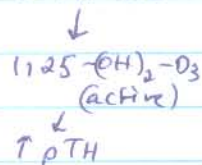 ↓
1,25-(OH)₂-D₃
(active)
↙
↑ PTH